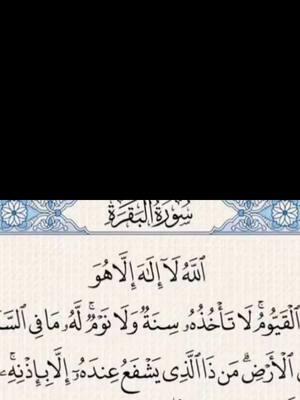 سُورَةُ الْبَقَرَةِ
ٱللَّهُ لَآ إِلَٰهَ إِلَّا هُوَ
ٱلْقَيُّومُ ۚ لَا تَأْخُذُهُۥ سِنَةٌ وَلَا نَوْمٌ ۚ لَّهُۥ مَا فِى ٱلسَّ
ٱلْأَرْضِ ۗ مَن ذَا ٱلَّذِى يَشْفَعُ عِندَهُۥٓ إِلَّا بِإِذْنِهِۦ ۚ